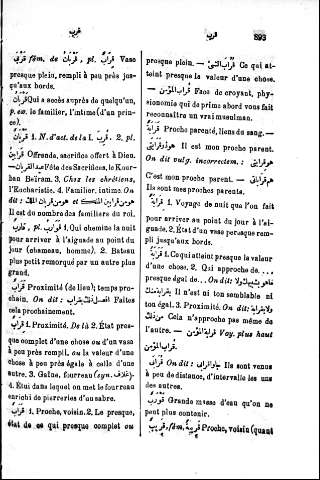 غرب
قرب
593
قَرْبَى fém. de قَرْبَان, pl. قِرَاب Vase
presque plein, rempli à peu près jus-
qu'aux bords.
قُرْبَان Qui a accès auprès de quelqu'un,
p. ex. le familier, l'intime (d'un prin-
ce).
قُرْبَان 1. N. d'act. de la I. قرب. 2. pl.
قَرَابِين Offrande, sacrifice offert à Dieu.
عيد القربان — Fête des Sacrifices, le Kour-
ban Beïram. 3. Chez les chrétiens,
l'Eucharistie. 4. Familier, intime. On
dit: هو من قرابين الملك
Il est du nombre des familiers du roi.
قَارِب, pl. قَوَارِب 1. Qui chemine la nuit
pour arriver à l'aiguade au point du
jour (chameau, homme). 2. Bateau
plus petit remorqué par un autre plus
grand.
قَرَاب Proximité (de lieu); temps pro-
chain. On dit: افعل ذلك بقراب Faites
cela prochainement.
قِرَاب 1. Proximité. De là 2. État pres-
que complet d'une chose ou d'un vase
à peu près rempli, ou la valeur d'une
chose à peu près égale à celle d'une
autre. 3. Gaîne, fourreau (syn. غلاف).
4. Étui dans lequel on met le fourreau
enrichi de pierreries d'un sabre.
قُرَاب 1. Proche, voisin. 2. Le presque,
état de ce qui presque complet ou
presque plein. — قُرَاب الشَّىْ Ce qui at-
teint presque la valeur d'une chose.
— قراب المؤمن Face de croyant, phy-
sionomie qui de prime abord vous fait
reconnaître un vrai musulman.
قَرَابَة Proche parenté, liens du sang. —
هو ذو قرابتى Il est mon proche parent.
On dit vulg. incorrectem.: هو قرابتى
C'est mon proche parent. — هم قرابتى
Ils sont mes proches parents.
قِرَابَة 1. Voyage de nuit que l'on fait
pour arriver au point du jour à l'ai-
guade. 2. État d'un vase presque rem-
pli jusqu'aux bords.
قُرَابَة 1. Ce qui atteint presque la valeur
d'une chose. 2. Qui approche de....
presque égal à.... On dit:
Il n'est ni ton semblable ni
ton égal. 3. Proximité. On dit:
Cela n'approche pas même de
l'autre. — قرابة المؤمن Voy. plus haut
قراب المؤمن
قُرَابَى On dit: جاؤا قرابى Ils sont venus
à peu de distance, d'intervalle les uns
des autres.
قَوْرَب Grande masse d'eau qu'on ne
peut plus contenir.
قَرِيب, fém. قَرِيبَة Proche, voisin (quant